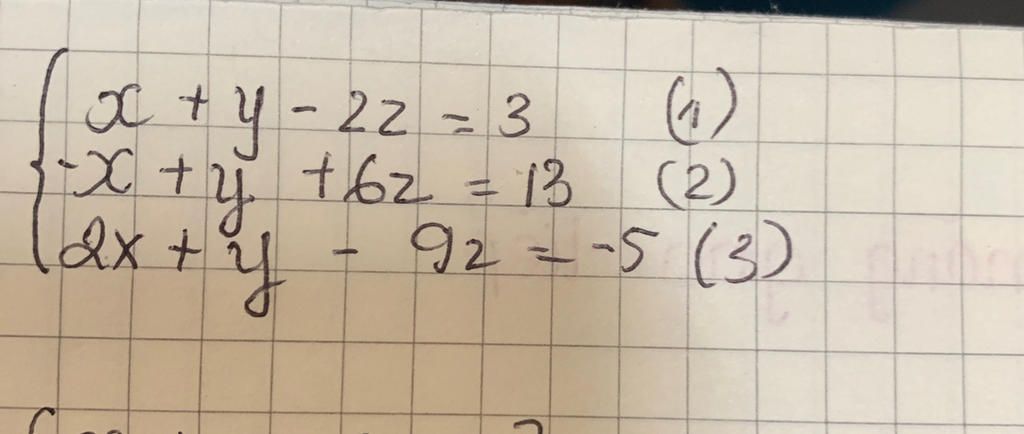 x + y - 2z = 3 (1)
-x + y + 6z = 13 (2)
2x + y - 9z = -5 (3)